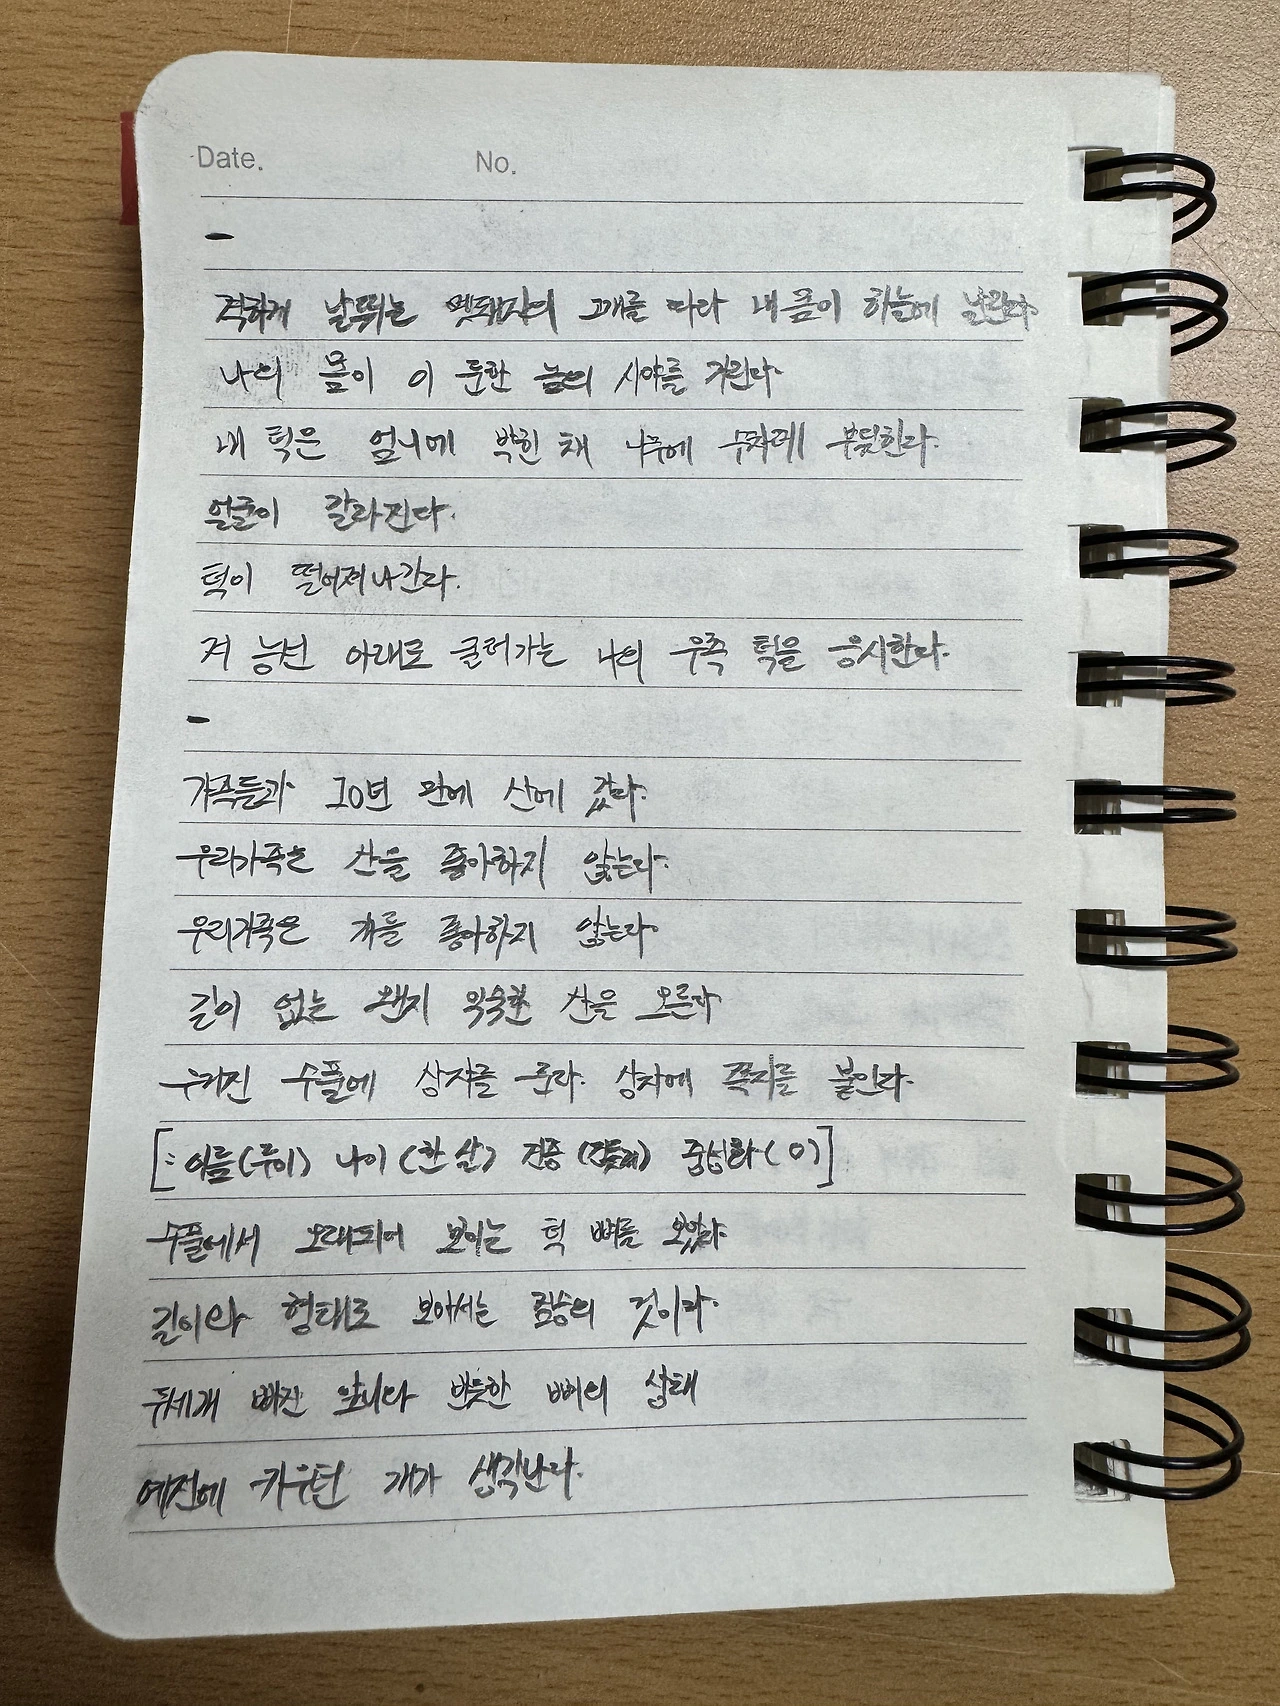 Date. No.
-
격하게 날뛰는 멧돼지의 고개를 따라 내 몸이 하늘에 날린다
나의 몸이 이 둔한 놈의 시야를 가린다.
내 턱은 엄니에 박힌 채 나무에 수차례 부딪힌다.
얼굴이 갈라진다.
턱이 떨어져 나간다.
저 능선 아래로 굴러가는 나의 우측 턱을 응시한다.
-
가족들과 10년 만에 산에 갔다.
우리가족은 산을 좋아하지 않는다.
우리가족은 개를 좋아하지 않는다.
길이 없는 왠지 익숙한 산을 오른다
우거진 수풀에 상자를 둔다. 상자에 쪽지를 붙인다.
[: 이름(두이) 나이(한 살) 견종 중성화(O)]
수풀에서 오래되어 보이는 턱 뼈를 보았다.
길이와 형태로 보아서는 짐승의 것이다.
두세개 빠진 앞니와 반듯한 뼈의 상태
예전에 키우던 개가 생각난다.